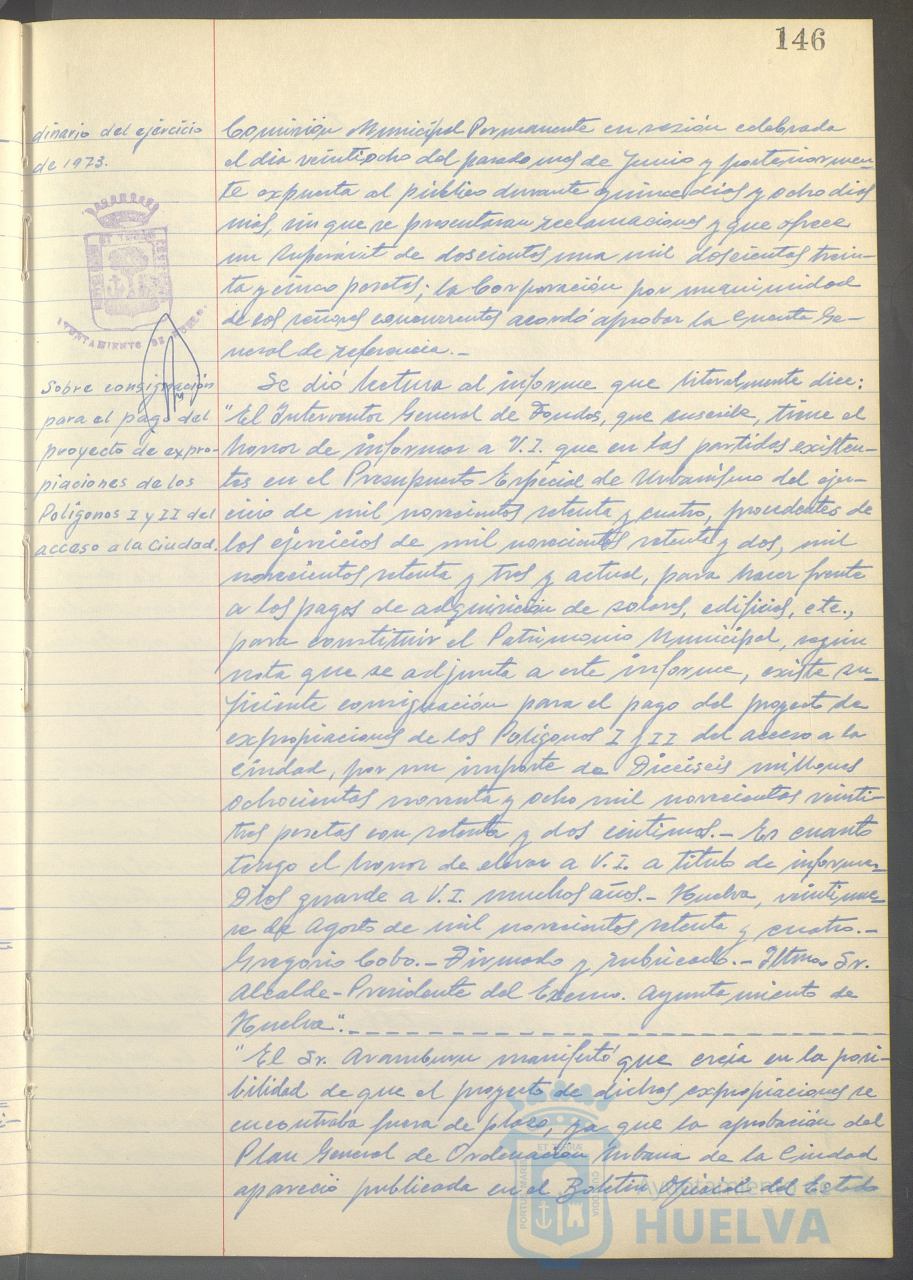 146
dinario del ejercicio
de 1973.
Comisión Municipal Permanente en sesión celebrada
el dia veintiocho del pasado mes de Junio y posteriormen-
te expuesta al público durante quince dias y ocho dias
más, sin que se presentaran reclamaciones y que ofrece
un Superávit de doscientas una mil doscientas trein-
ta y cinco pesetas; la Corporación por unanimidad
de los señores concurrentes acordó aprobar la Cuenta Ge-
neral de referencia.-
AYUNTAMIENTO DE
Sobre consignación
para el pago del
proyecto de expro-
piaciones de los
Polígonos I y II del
acceso a la Ciudad.
Se dió lectura al informe que literalmente dice:
"El Interventor General de Fondos, que suscribe, tiene el
honor de informar a V.I. que en las partidas existen-
tes en el Presupuesto Especial de Urbanismo del ejer-
cicio de mil novecientos setenta y cuatro, procedentes de
los ejercicios de mil novecientos setenta y dos, mil
novecientos setenta y tres y actual, para hacer frente
a los pagos de adquisición de solares, edificios, etc.,
para constituir el Patrimonio Municipal, según
nota que se adjunta a este informe, existe su-
ficiente consignación para el pago del proyecto de
expropiaciones de los Polígonos I y II del acceso a la
Ciudad, por un importe de Dieciseis millones
ochocientas noventa y ocho mil novecientas veinti-
tres pesetas con setenta y dos céntimos.- Es cuanto
tengo el honor de elevar a V.I. a titulo de informe.-
Dios guarde a V.I. muchos años.- Huelva, veintinue-
ve de Agosto de mil novecientos setenta y cuatro.-
Gregorio Cobo.- Firmado y rubricado.- Iltmo. Sr.
Alcalde-Presidente del Excmo. Ayuntamiento de
Huelva".-
"El Sr. Aramburu manifestó que creia en la posi-
bilidad de que el proyecto de dichas expropiaciones se
encontraba fuera de plazo, ya que la aprobación del
Plan General de Ordenación Urbana de la Ciudad
apareció publicada en el Boletin Oficial del Estado
PORTUS MARIS ET TERRAE CUSTODIA
Ayuntamiento de
HUELVA